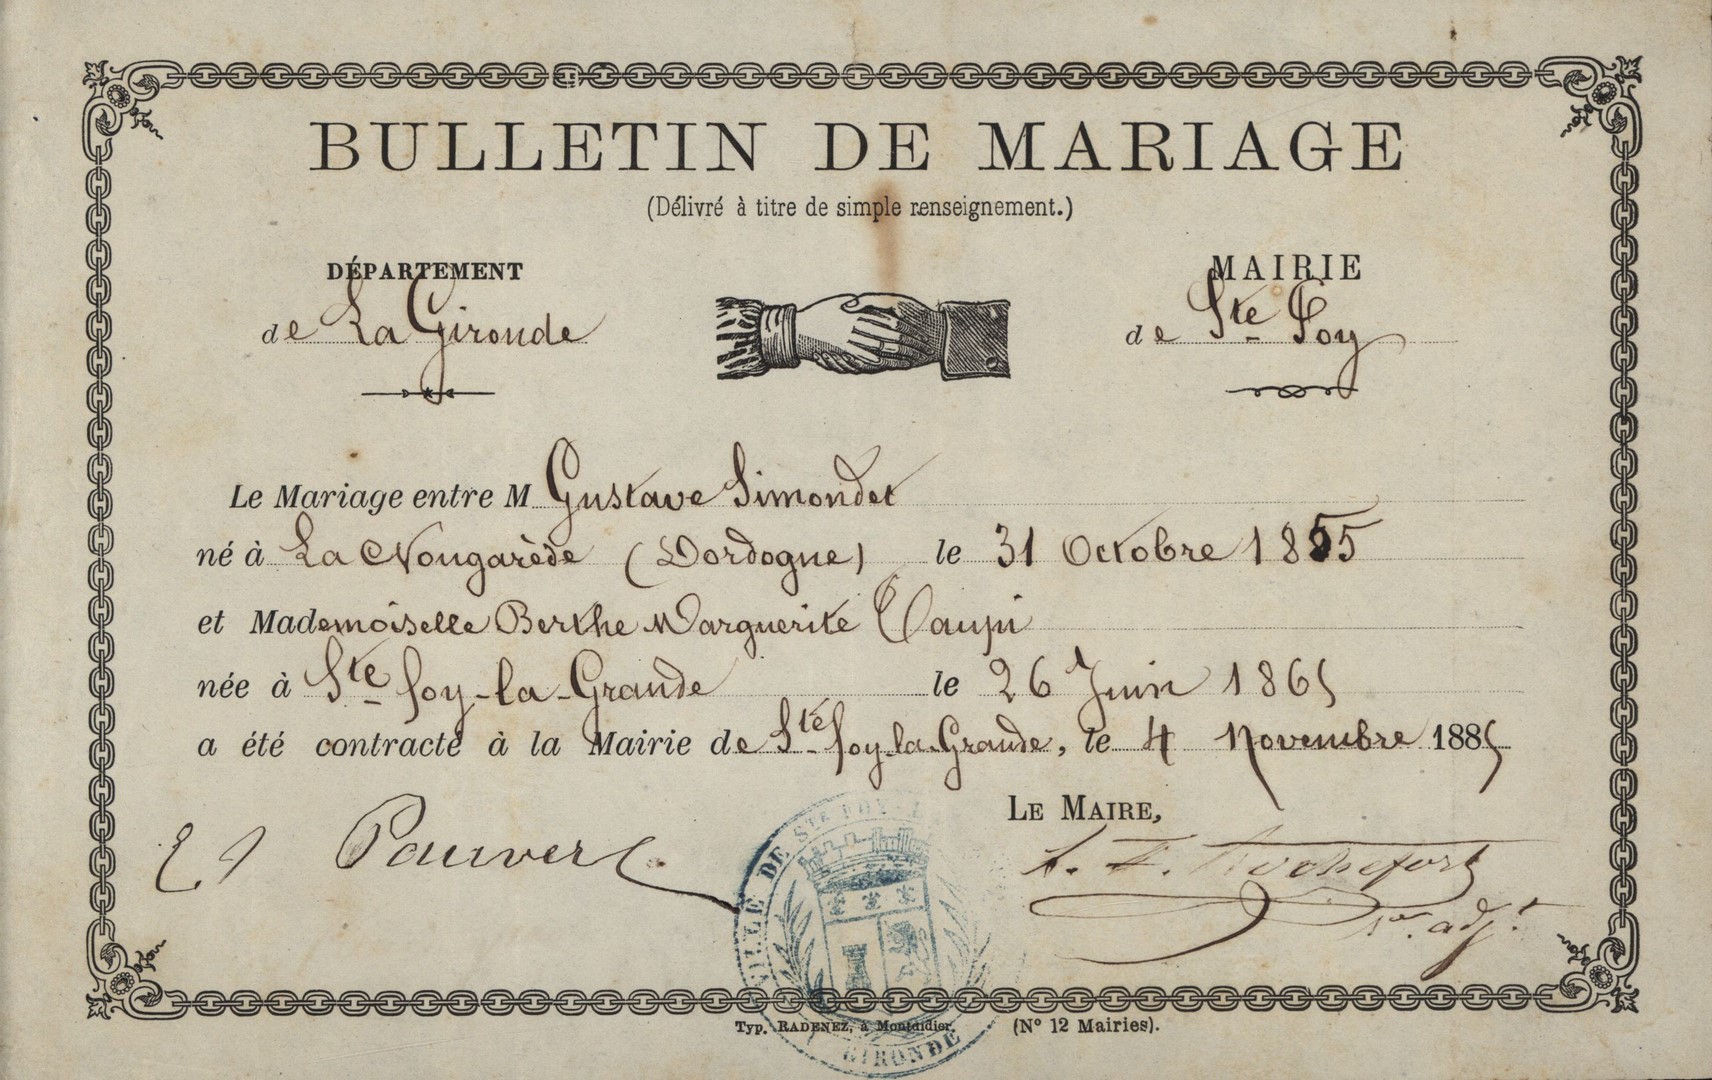 BULLETIN DE MARIAGE
(Délivré à titre de simple renseignement.)
DÉPARTEMENT
de La Gironde
MAIRIE
de Ste Foy
Le Mariage entre M Gustave Simondet
né à La Nougarède (Dordogne) le 31 Octobre 1855
et Mademoiselle Berthe Marguerite
née à Ste foy-la-Grande le 26 Juin 1865
a été contracté à la Mairie de Ste foy-la-Grande, le 4 Novembre 1885
LE MAIRE,
Pauvert
Rochefort
1er. adjt
VILLE DE STE FOY
GIRONDE
Typ. RADENEZ, à Montdidier. (N° 12 Mairies).